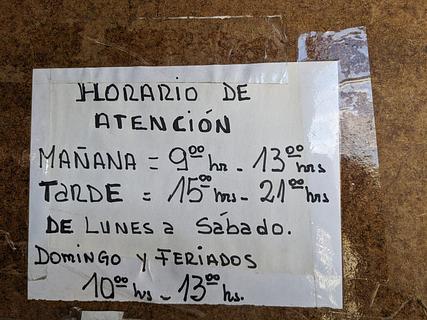 HORARIO DE
ATENCIÓN
MAÑANA = 9⁰⁰ hr - 13⁰⁰ hrs
TARDE = 15⁰⁰ hrs - 21⁰⁰ hrs
DE LUNES a Sábado.
DOMINGO y FERIADOS
10⁰⁰ hs - 13⁰⁰ hs.